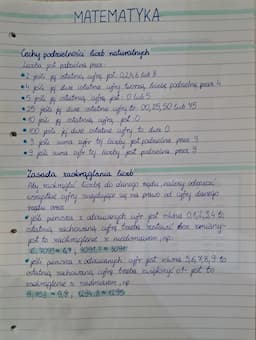 MATEMATYKA
Cechy podzielności liczb naturalnych
Liczba jest podzielna przez:
• 2 jeśli jej ostatnią cyfrą jest: 0,2,4,6 lub 8
• 4 jeśli jej dwie ostatnie cyfry tworzą liczbę podzielną przez 4
• 5 jeśli jej ostatnią cyfrą jest: 0 lub 5
• 25 jeśli jej dwie ostatnie cyfry to: 00,25,50 lub 75
• 10 jeśli jej ostatnią cyfrą jest 0
• 100 jeśli jej dwie ostatnie cyfry to dwa 0
• 3 jeśli suma cyfr tej liczby jest podzielna przez 3
• 9 jeśli suma cyfr tej liczby jest podzielna przez 9
Zasada zaokrąglania liczb
Aby zaokrąglić liczbę do danego rzędu, należy odrzucić
wszystkie cyfry znajdujące się na prawo od cyfry danego
rzędu oraz:
• jeśli pierwsza z odrzucanych cyfr jest równa 0,1,2,3,4 to
ostatnią zachowaną cyfrę trzeba zostawić bez zmiany-
jest to zaokrąglenie z niedomiarem, np:
• jeśli pierwsza z odrzucanych cyfr jest równa 5,6,7,8,9 to
ostatnią zachowaną cyfrę trzeba zwiększyć o 1- jest to
zaokrąglenie z nadmiarem, np